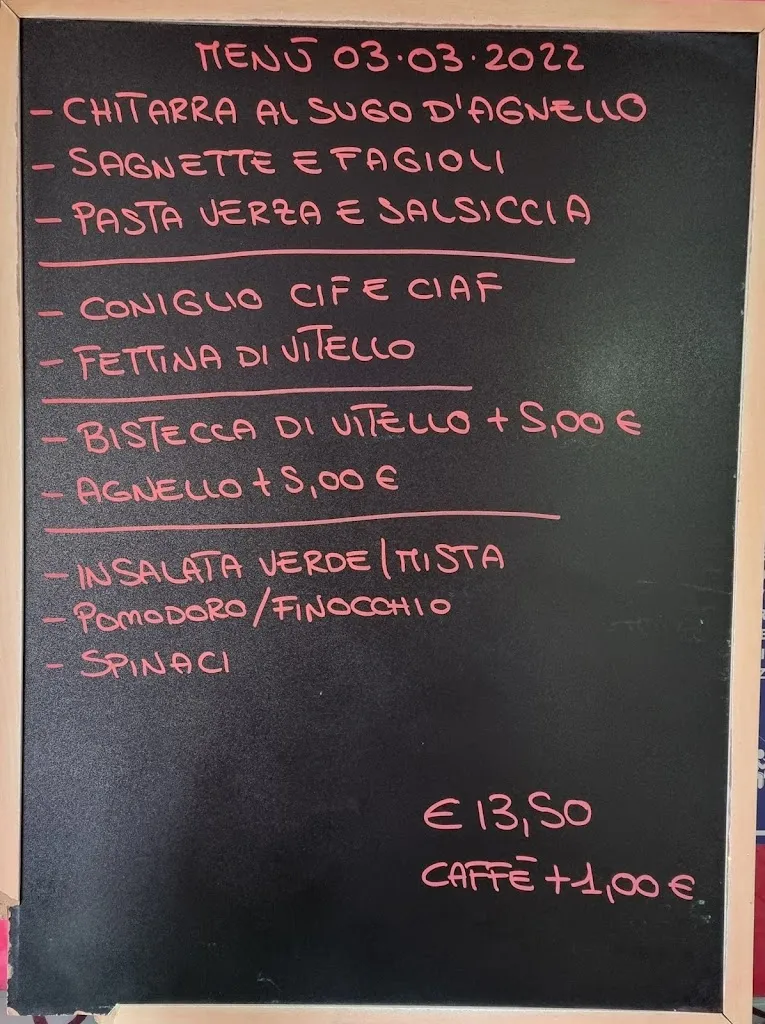 MENÙ 03.03.2022
- CHITARRA AL SUGO D'AGNELLO
- SAGNETTE E FAGIOLI
- PASTA VERZA E SALSICCIA
- CONIGLIO CIF E CIAF
- FETTINA DI VITELLO
- BISTECCA DI VITELLO + 5,00 €
- AGNELLO + 5,00 €
- INSALATA VERDE/MISTA
- POMODORO/FINOCCHIO
- SPINACI
€ 13,50
CAFFÈ + 1,00 €